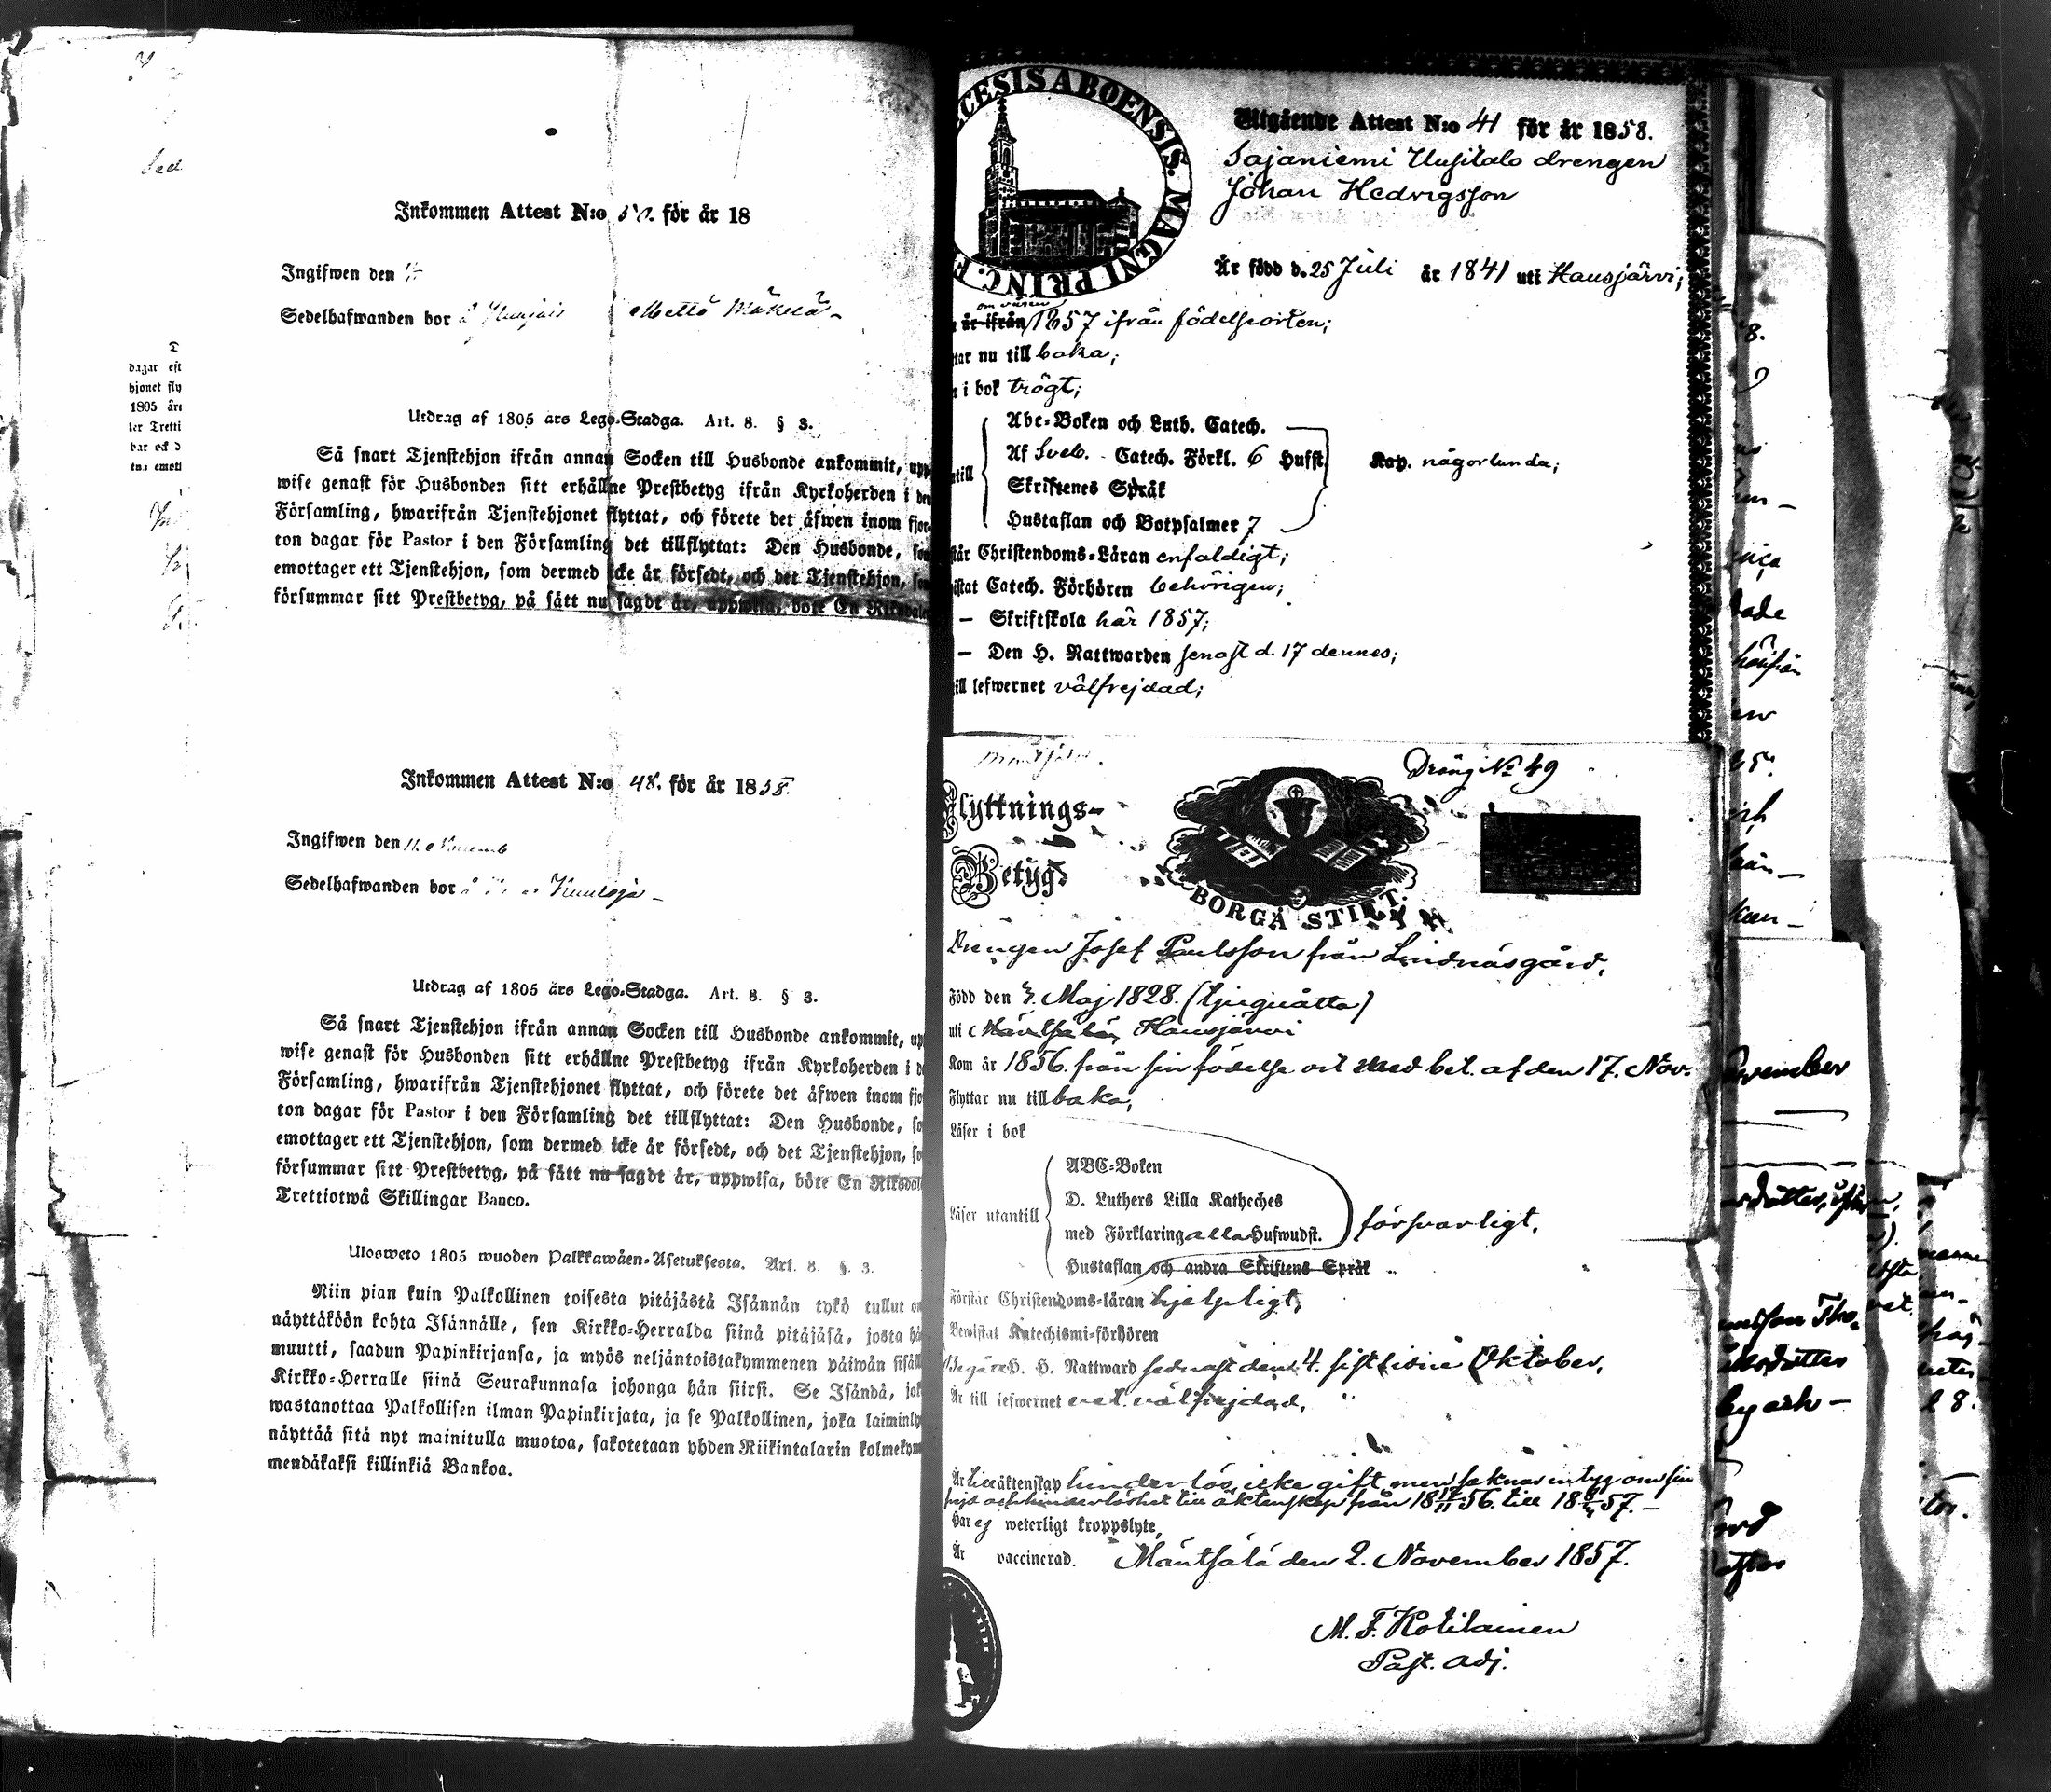 Inkommen Attest N:o 50. för år 18
Ingifwen den
Sedelhafwanden bor Mettö Mäkelä
Utdrag af 1805 års Lego-Stadga. Art. 8. § 3.
Så snart Tjenstehjon ifrån annan Socken till Husbonde ankommit, upp-
wise genast för Husbonden sitt erhållne Prestbetyg ifrån Kyrkoherden i den
Församling, hwarifrån Tjenstehjonet flyttat, och förete det äfwen inom fjor-
ton dagar för Pastor i den Församling det tillflyttat: Den Husbonde, som
emottager ett Tjenstehjon, som dermed icke är försedt, och det Tjenstehjon, som
försummar sitt Prestbetyg, på sätt nu sagdt är, uppwisa, böte En Riksdaler
Inkommen Attest N:o 48. för år 1858.
Ingifwen den 11. Novemb
Sedelhafwanden bor å
Utdrag af 1805 års Lego-Stadga. Art. 8. § 3.
Så snart Tjenstehjon ifrån annan Socken till Husbonde ankommit, up
wise genast för Husbonden sitt erhållne Prestbetyg ifrån Kyrkoherden i d
Församling, hwarifrån Tjenstehjonet flyttat, och förete det äfwen inom fjo
ton dagar för Pastor i den Församling det tillflyttat: Den Husbonde, so
emottager ett Tjenstehjon, som dermed icke är försedt, och det Tjenstehjon, so
försummar sitt Prestbetyg, på sätt nu sagdt är, uppwisa, böte En Riksdal
Trettiotwå Skillingar Banco.
Ulosweto 1805 wuoden Palkkawäen-Asetuksesta. Art. 8. §. 3.
Niin pian kuin Palkollinen toisesta pitäjästä Isännän tykö tullut on
näyttäköön kohta Isännälle, sen Kirkko-Herralda siinä pitäjäsä, josta hä
muutti, saadun Papinkirjansa, ja myös neljäntoistakymmenen päiwän sisäll
Kirkko-Herralle siinä Seurakunnasa johonga hän siirsi. Se Isändä, jok
wastanottaa Palkollisen ilman Papinkirjata, ja se Palkollinen, joka laiminly
näyttää sitä nyt mainitulla muotoa, sakotetaan yhden Riikintalarin kolmekym
mendäkaksi killinkiä Bankoa.
CESIS ABOENSIS. MAGNI PRINC. F
Utgående Attest N:o 41 för år 1858.
Sajaniemi Uusitalo drengen
Johan Hedvigsson
Är född d. 25 Juli år 1841 uti Hausjärvi;
om våren
är ifrån 1857 ifrån födelseorten;
tar nu till baka;
i bok trögt;
Abc-Boken och Luth. Catech.
Af Sveb. Catech. Förkl. 6 Hufst. Kap. någorlunda;
till
Skriftenes Språk
Hustaflan och Botpsalmer 7
står Christendoms-Läran enfaldigt;
istat Catech. Förhören behörigen;
— Skriftskola här 1857;
— Den H. Nattwarden senast d. 17 dennes;
ill lefwernet välfrejdad;
Dräng No 49
Flyttnings-
Betyg
BORGÅ STIFT.
Drengen Josef Paulsson från Lindnäsgård,
Född den 3. Maj 1828. (tjuguåtta)
uti Mäntsälä, Hausjärvi
Kom år 1856. från sin födelse ort med bet. af den 17. Nov.
Flyttar nu till baka,
Läser i bok
ABC-Boken
D. Luthers Lilla Katheches
Läser utantill
med Förklaring alla Hufwudst. försvarligt,
Hustaflan och andra Skriftens Språk
Förstår Christendoms-läran hjelpligt,
Bewistat Katechismi-förhören
Begått H. H. Nattward sednast den 4. sistlidne Oktober,
Är till lefwernet vet. välfrejdad,
Är till äktenskap hinderslös, icke gift, men saknar intyg om sin
frejd och hinderlöshet till äktenskap från 18 17/11 56. till 57.
Har ej weterligt kroppslyte,
Är vaccinerad. Mäntsälä den 2. November 1857.
M. F. Kotilainen
Past. adj.